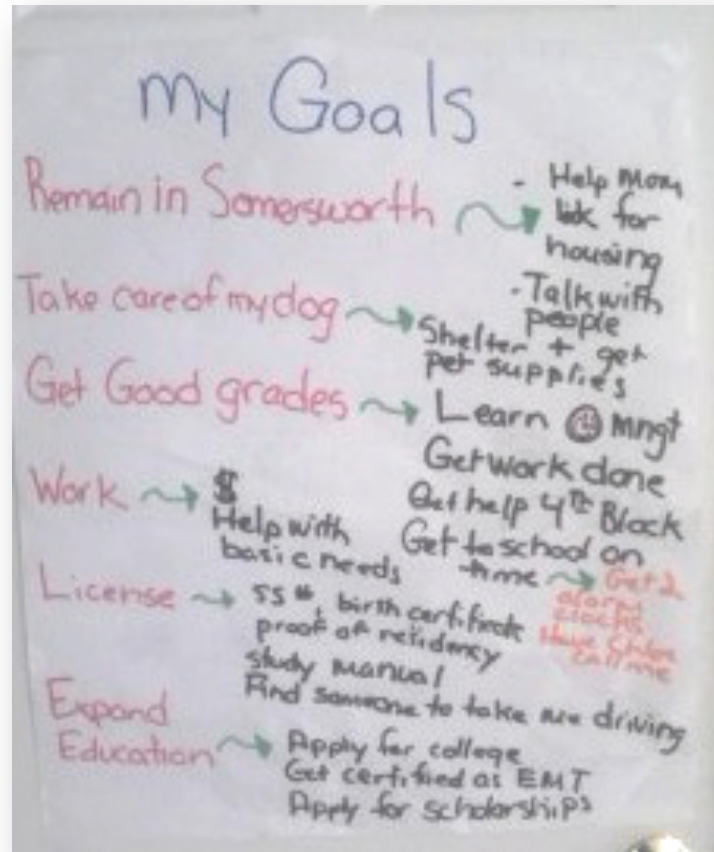 My Goals
Remain in Somersworth
- Help Mom
look for
housing
- Talk with
people
Take care of my dog
Shelter + get
pet supplies
Get Good grades
Learn mngt
Get work done
Get help 4th Block
Get to school on
time
Get 2
alarm
clocks
Have
call me
Work
$
Help with
basic needs
License
SS#, birth certificate
proof of residency
study manual
Find someone to take me driving
Expand
Education
Apply for college
Get certified as EMT
Apply for scholarships